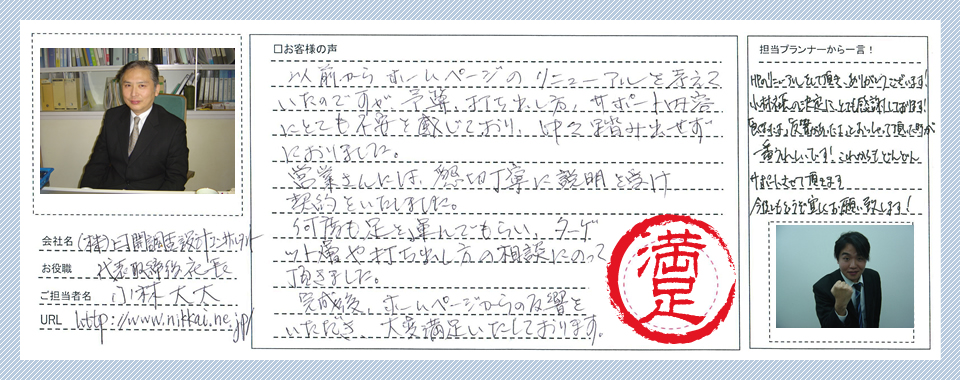 会社名 (株)日開調査設計コンサルタント
お役職 代表取締役社長
ご担当者名 小林大太
URL http://www.nikkai.ne.jp/
□お客様の声
以前からホームページのリニューアルを考えて
いたのですが予算、打ち出し方、サポート内容
にとても不安を感じており、中々踏み出せず
におりました。
営業さんには、懇切丁寧に説明を受け
契約をいたしました。
何度も足を運んでもらい、ターゲ
ット層や打ち出し方の相談にのって
頂きました。
完成後、ホームページからの反響を
いただき 大変満足いたしております。
満足
担当プランナーから一言！
HPのリニューアルをして頂き、ありがとうございます!
小林様の決定にとても感謝しております!
反響があったよとおっしゃって頂いたのが
一番うれしいです! これからもどんどん
サポートさせて頂きます
今後ともどうぞ宜しくお願い致します!